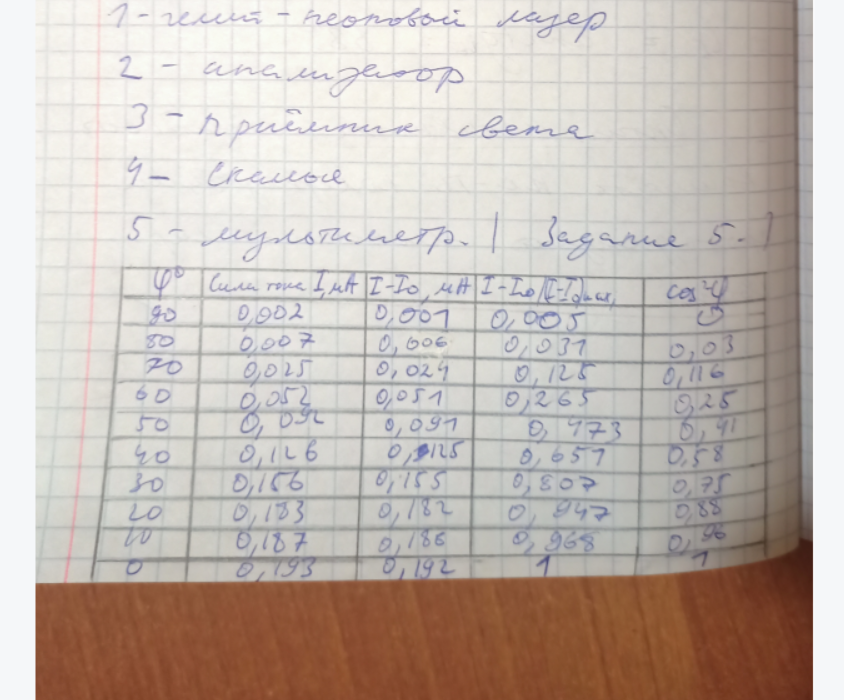 1 - гелий - неоновый лазер
2 - анализатор
3 - приёмник света
4 - Скамья
5 - мультиметр. | Задание 5. |
φ° Сила тока I, мА I-I₀, мА I-I₀/(I-I₀)max, cos²φ
90 0,002 0,001 0,005 0
80 0,007 0,006 0,031 0,03
70 0,025 0,024 0,125 0,116
60 0,052 0,051 0,265 0,25
50 0,092 0,091 0,473 0,41
40 0,126 0,125 0,651 0,58
30 0,156 0,155 0,807 0,75
20 0,183 0,182 0,947 0,88
10 0,187 0,186 0,968 0,96
0 0,193 0,192 1 1